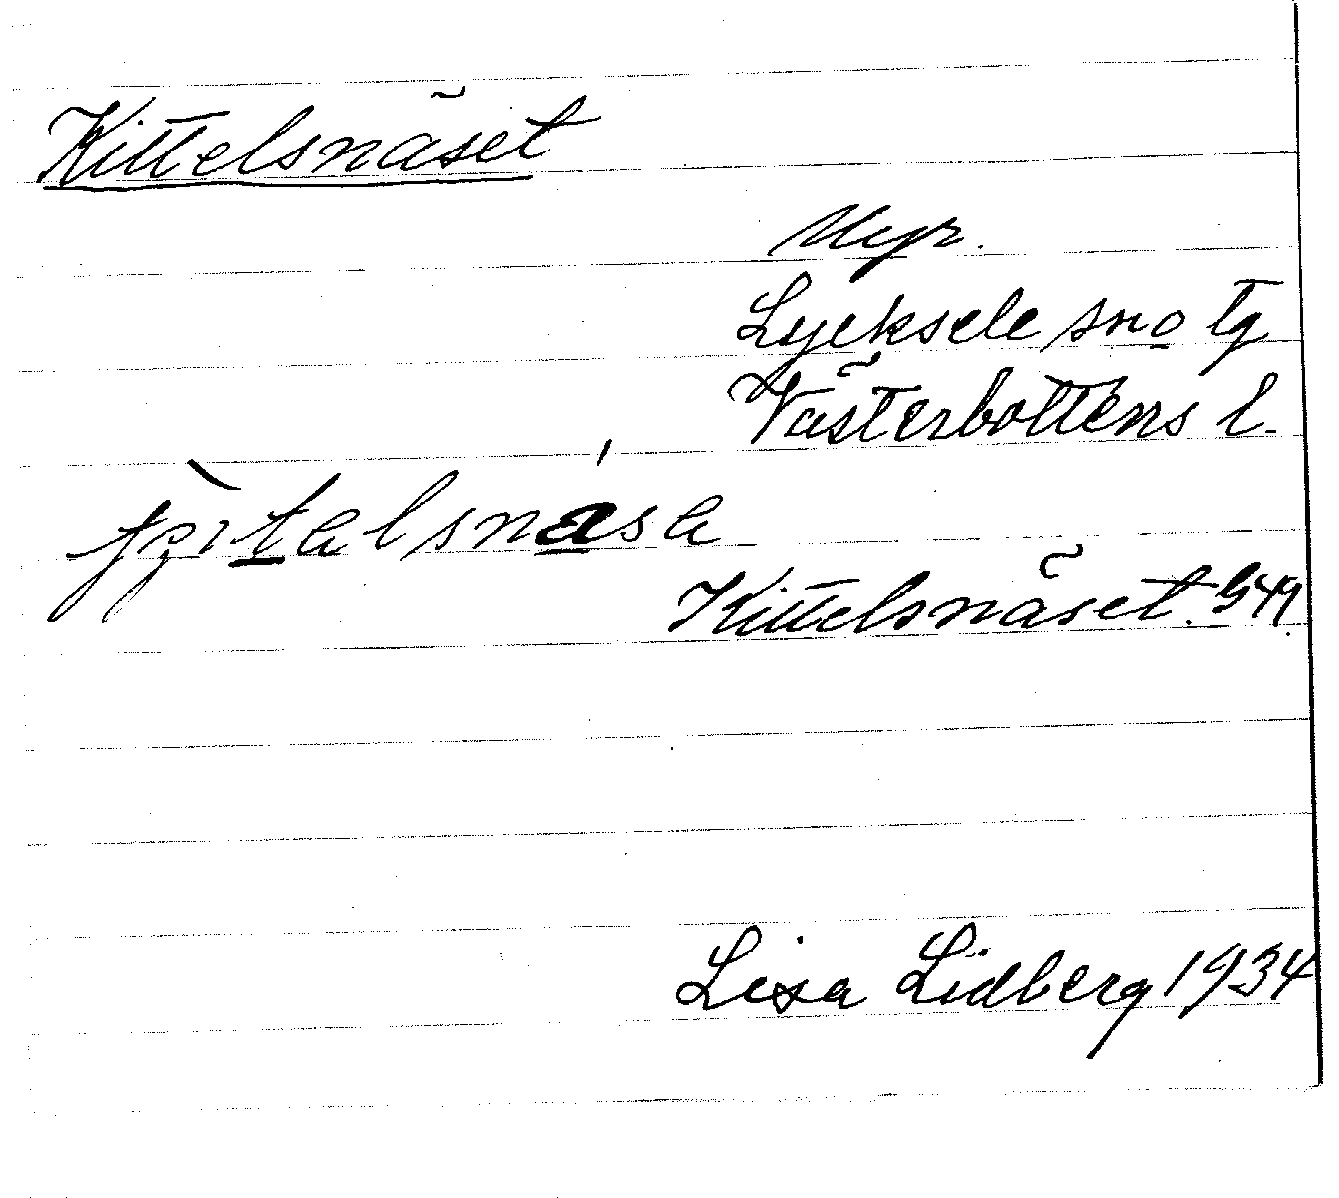 Kittelsnäset
Nypr.
Lycksele sno tg
Västerbottens l.
Kittelsnäset. G 49.
Lisa Lidberg 1934